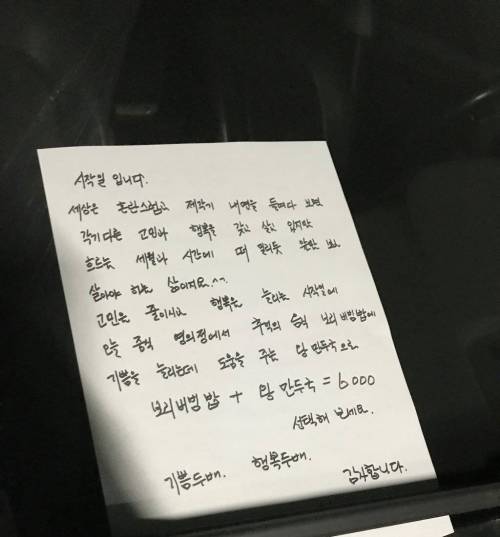 시작일 입니다.
세상은 혼란스럽고 제각기 내면을 들여다 보면
각기 다른 고민과 행복을 갖고 살고 있지만
흐르는 세월과 시간에 떠 밀리듯 앞만 보고
살아야 하는 삶이지요.^^
고민은 줄이시고 행복은 늘리는 시작일에
오늘 중식 영의정에서 추억의 음식 보리비빔밥에
기쁨을 늘리는데 도움을 주는 왕만두국으로
보리비빔밥 + 왕만두국 = 6000
선택해 보세요.
기쁨두배. 행복두배.
감사합니다.